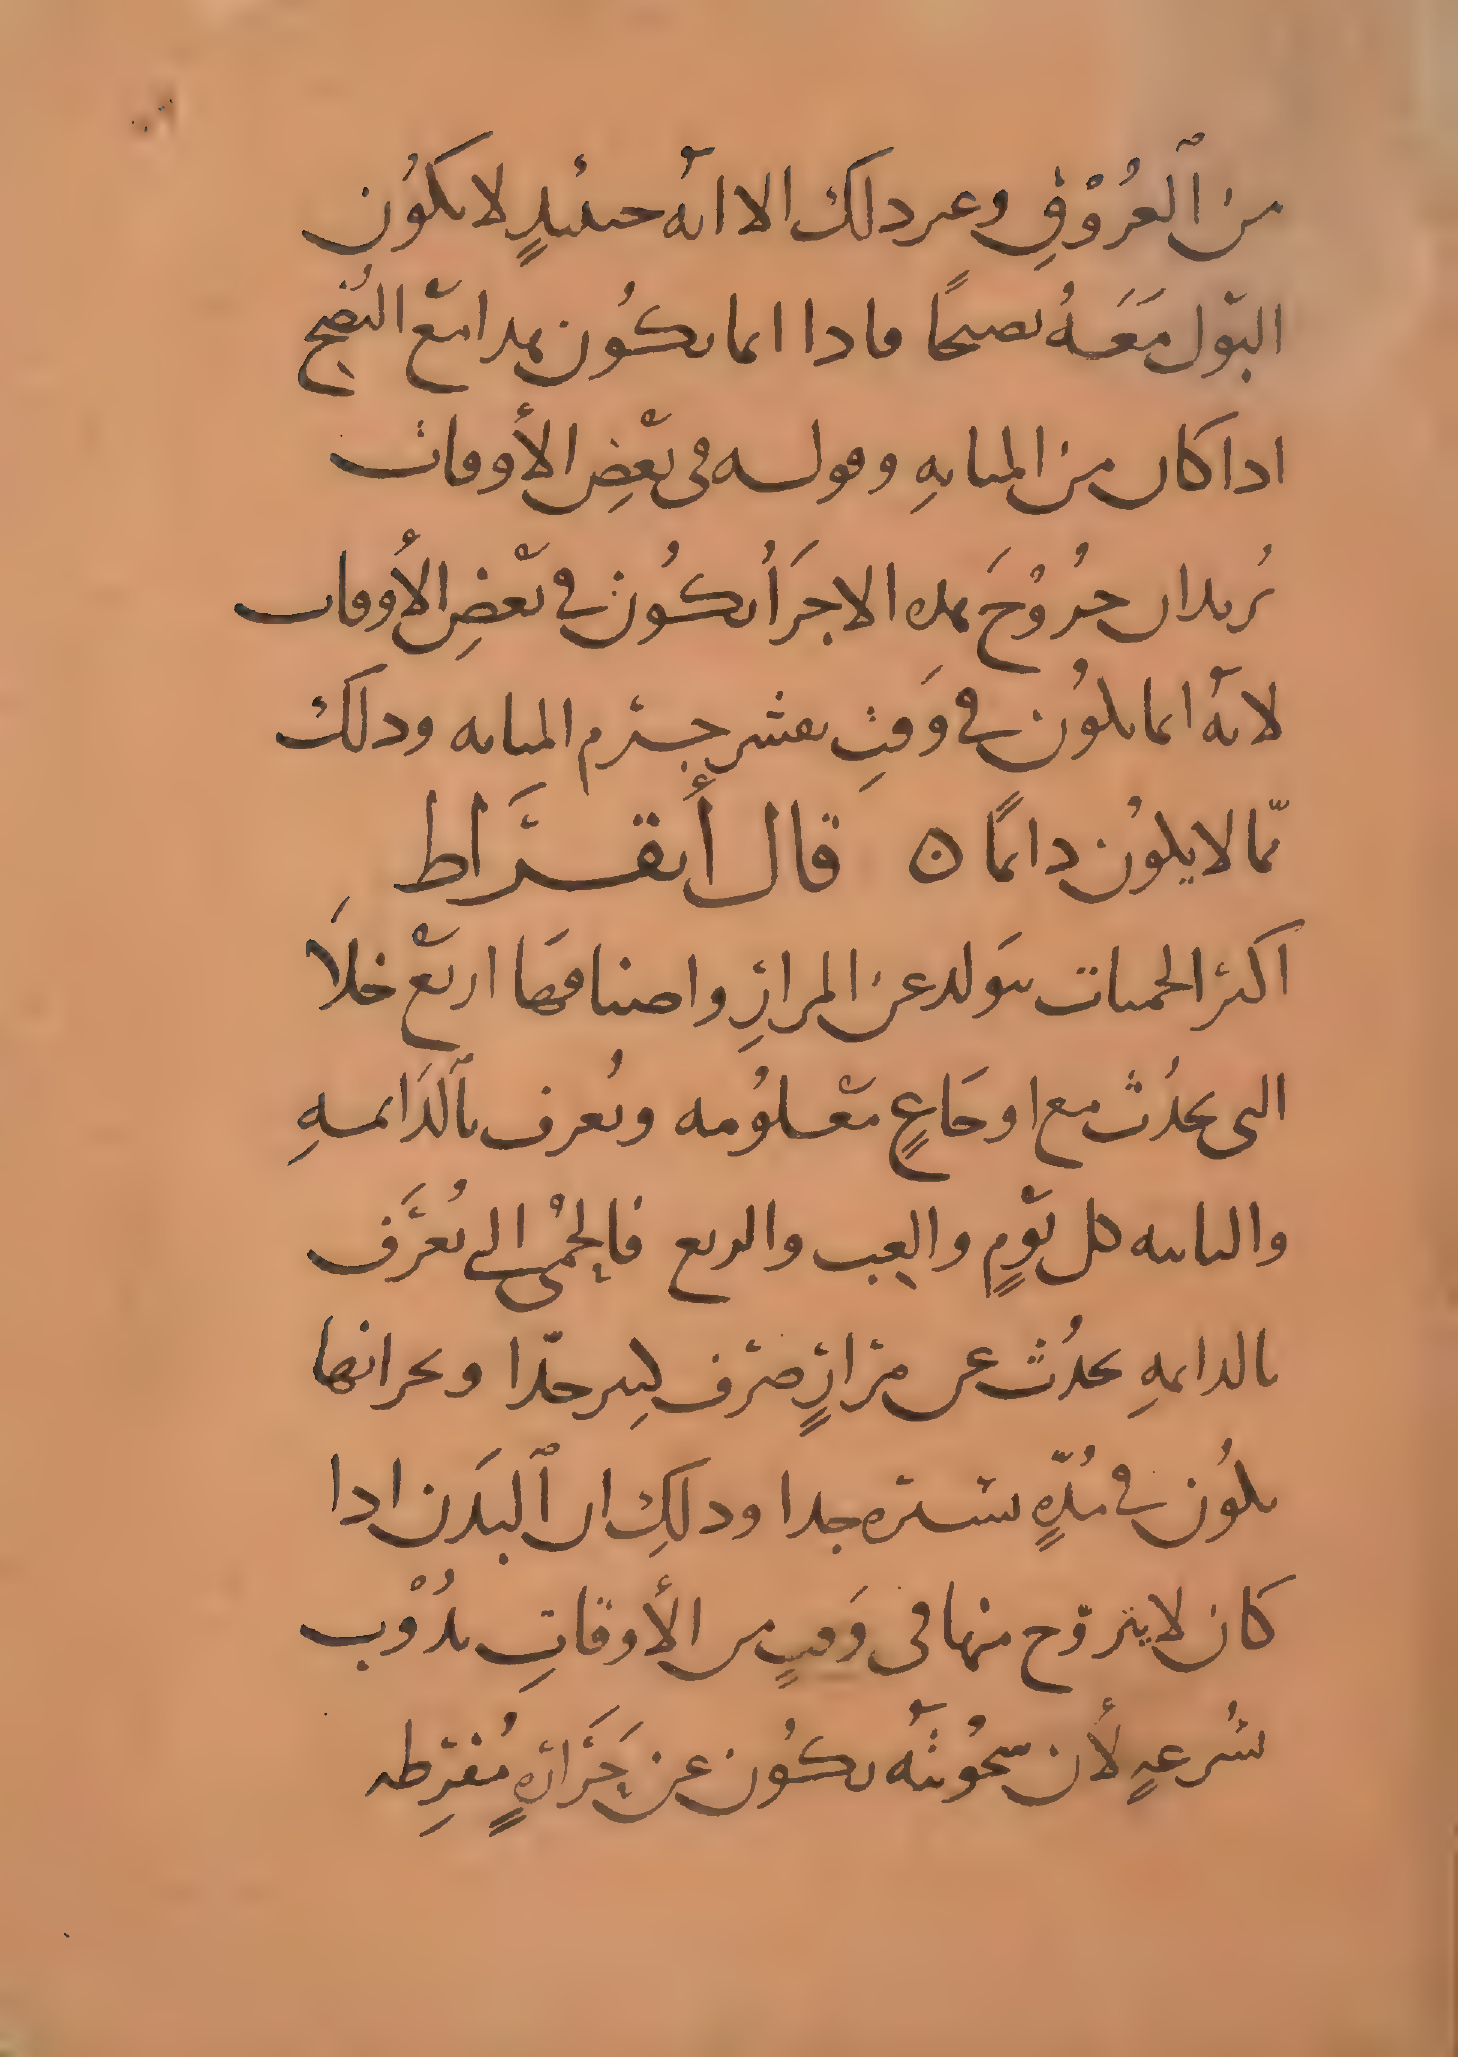 من العُرُوْقِ وغير ذلك الا انه حينئذٍ لا يكُون
البَوْل مَعَهُ نضيجًا فاذا انما يكُون بهذا مع النُضج
اذا كان من المثانهِ وقوله في بعْضِ الأوقات
يُريد ان خُرُوْجَ هذه الاجزَأُ يكُون في بعْضِ الأوقات
لانه انما يكُون في وَقتِ تقشر جرم المثانه وذلك
ممّا لا يكُون دائمًا ٥ قال أبقراط
اكثر الحميات يتَولد عن المرارِ واصنافهَا اربعْ خلَا
التي تحدُث مع اوجَاعٍ معْلُومه وتُعرف بالدَائمهِ
والنائبه كل يَوْمٍ والغِب والربع فالحُمْى التي تُعرَف
بالدائمهِ تحدُث عن مرارٍ صرف ليسِ حدّا وبحرانها
يكُون في مُدّهٍ يسيره جدا وذلكِ ان البَدَن اذا
كان لا يتروّح منها في وَقتٍ من الأوقاتِ يذُوْب
بسُرعهٍ لأن سخُونته يكُون عن حَرَارهٍ مُفرِطه